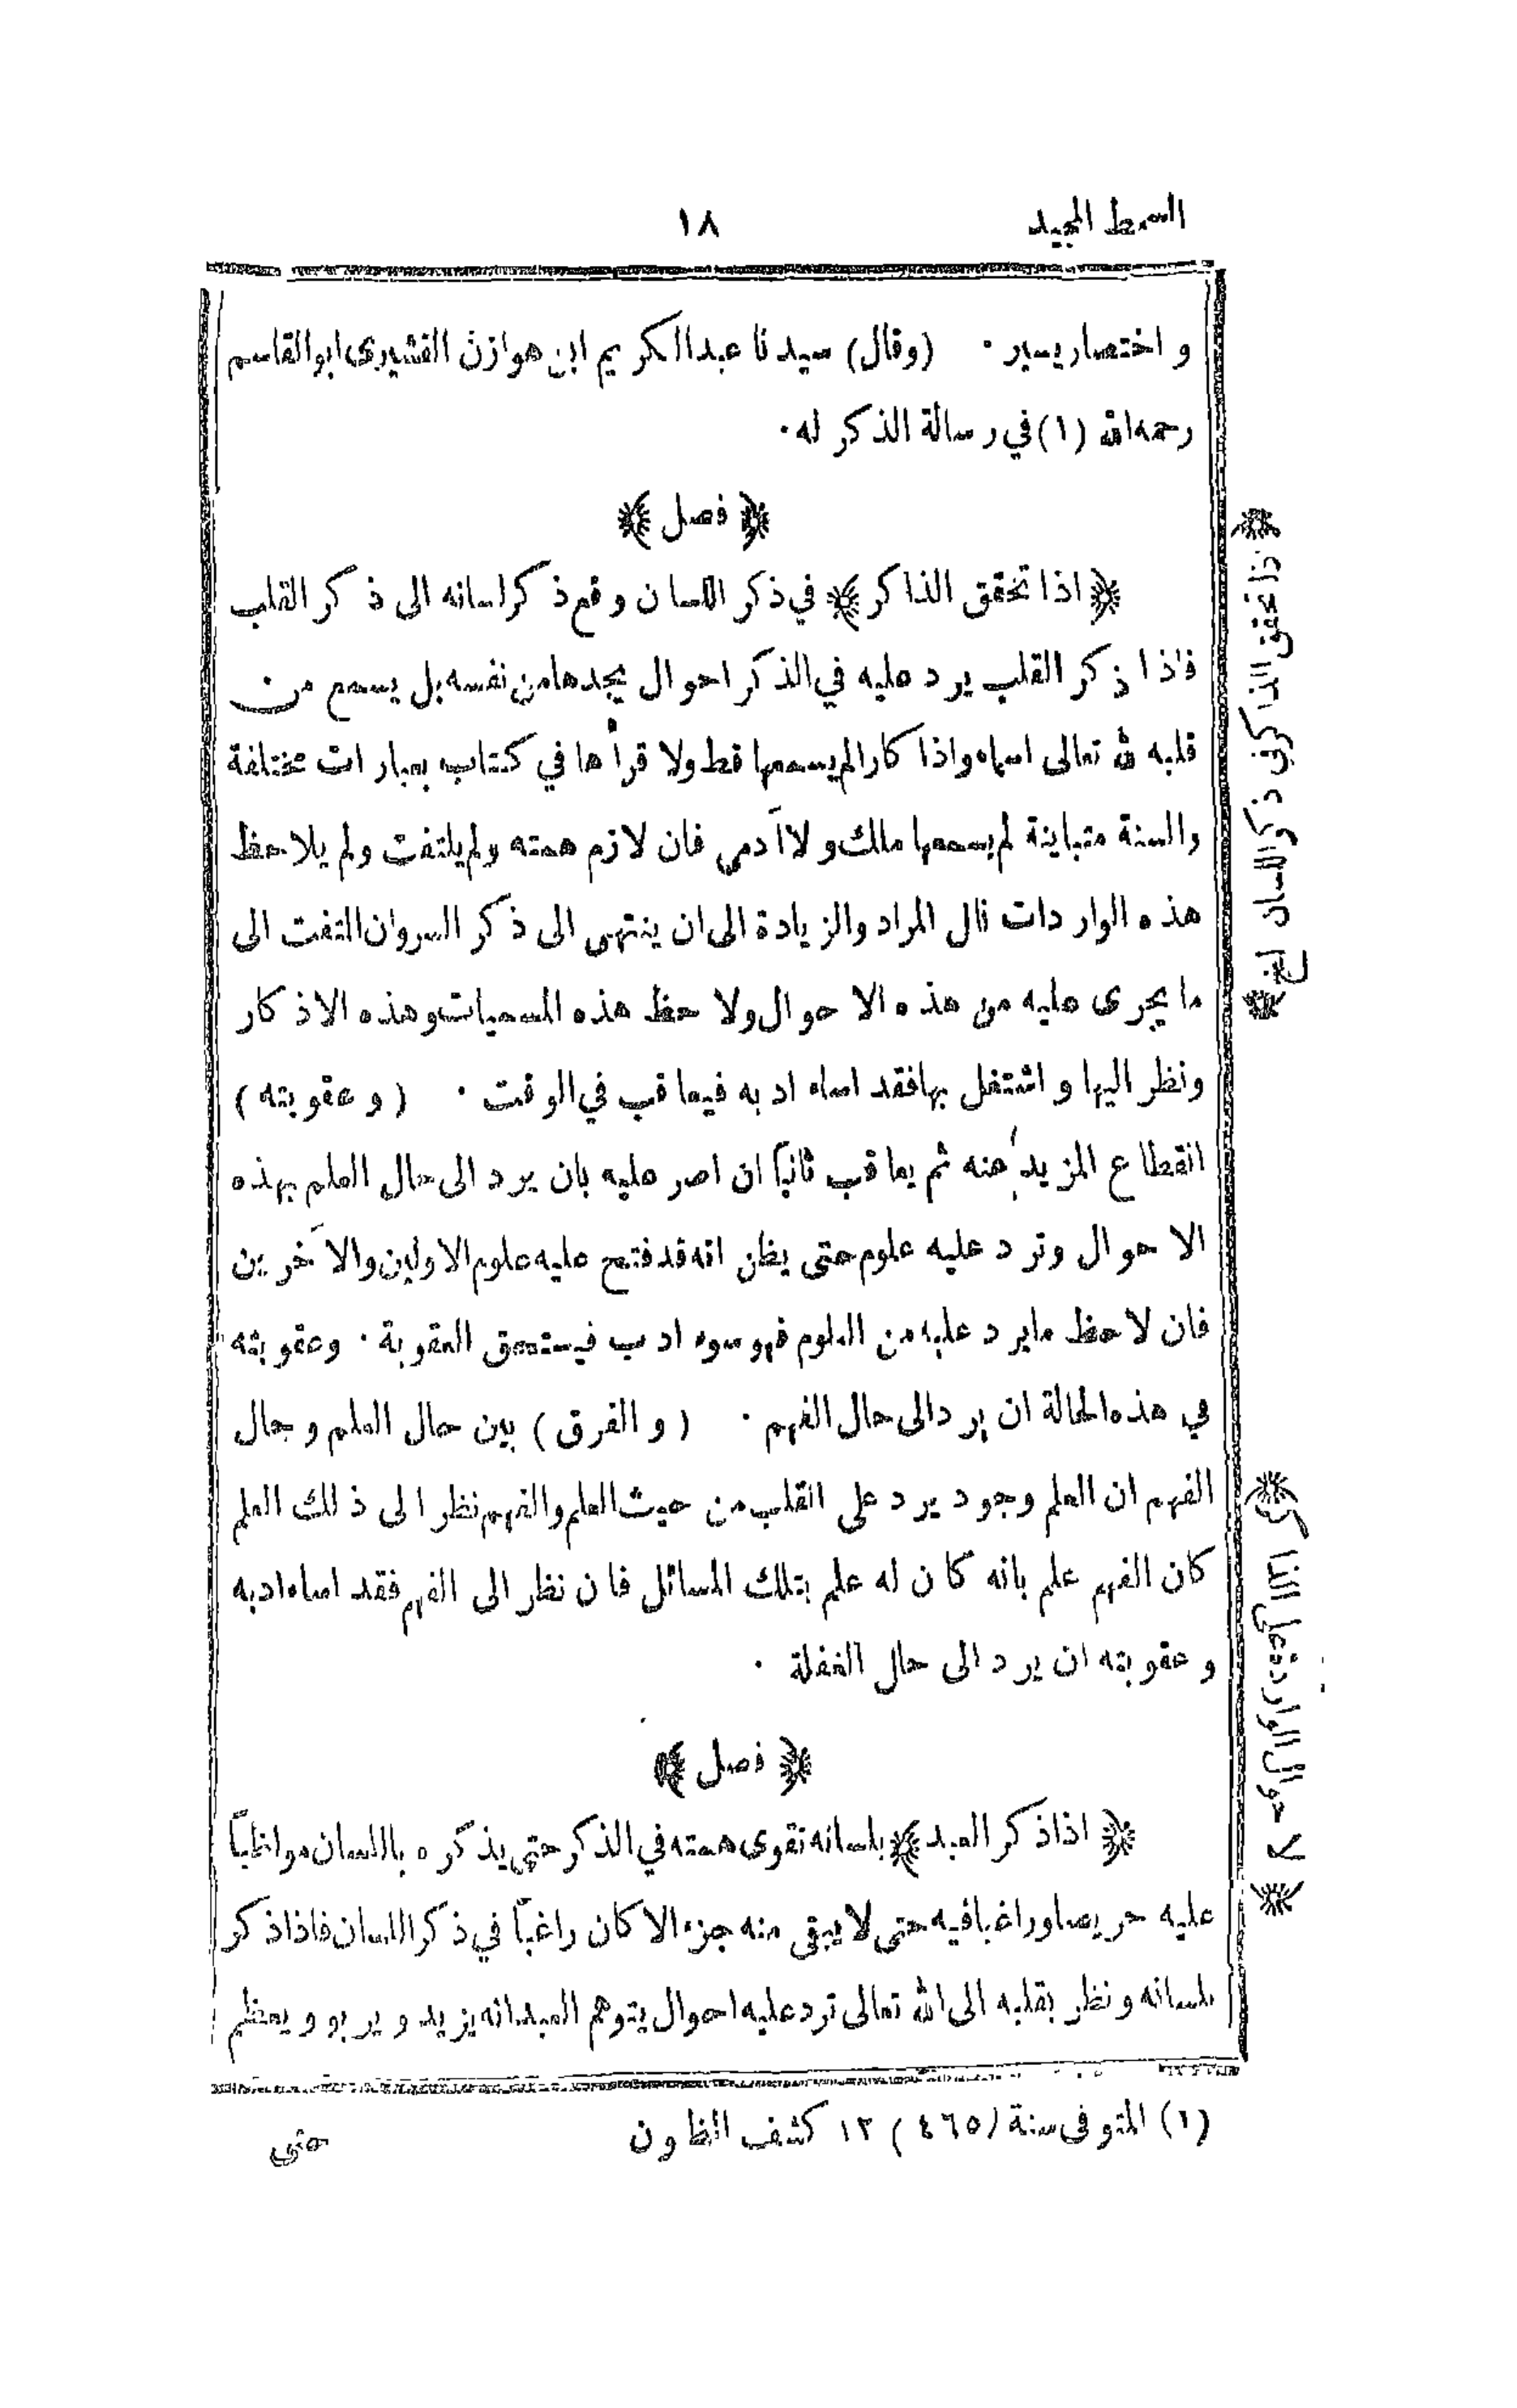 السمط المجيد
١٨
و اختصار يسير ٠ (وقال) سيدنا عبدالكريم ابن هوازن القشيرى ابوالقاسم
رحمه الله (١) في رسالة الذكر له ٠
﴿ فصل ﴾
﴿ اذا تحقق الذاكر ﴾ في ذكر اللسان وقع ذكر لسانه الى ذكر القلب
فاذا ذكر القلب يرد عليه في الذكر احوال يجدها من نفسه بل يسمع من
قلبه لله تعالى اسماء واذكارا لم يسمعها قط ولا قرأها في كتاب بعبارات مختلفة
والسنة متباينة لم يسمعها ملك ولا آدمي فان لازم همته ولم يلتفت ولم يلاحظ
هذه الواردات نال المراد والزيادة الى ان ينتهى الى ذكر السر وان التفت الى
ما يجرى عليه من هذه الاحوال ولاحظ هذه المسميات وهذه الاذكار
ونظر اليها و اشتغل بها فقد اساء ادبه فيعاقب في الوقت ٠ ( و عقوبته )
انقطاع المزيد عنه ثم يعاقب ثانياً ان اصر عليه بان يرد الى حال العلم بهذه
الاحوال وترد عليه علوم حتى يظن انه قد فتح عليه علوم الاولين والآخرين
فان لاحظ ما يرد عليه من العلوم فهو سوء ادب فيستحق العقوبة ٠ وعقوبته
في هذه الحالة ان يرد الى حال الفهم ٠ ( و الفرق ) بين حال العلم و حال
الفهم ان العلم وجود يرد على القلب من حيث العلم والفهم نظر الى ذلك العلم
كان الفهم علم بانه كان له علم بتلك المسائل فان نظر الى الفهم فقد اساء ادبه
و عقوبته ان يرد الى حال الغفلة ٠
﴿ فصل ﴾
﴿ اذا ذكر العبد ﴾ بلسانه تقوى همته في الذكر حتى يذكره باللسان مواظباً
عليه حريصا وراغبا فيه حتى لا يبقى منه جزء الا كان راغباً في ذكر اللسان فاذا ذكر
بلسانه و نظر بقلبه الى الله تعالى ترد عليه احوال يتوهم العبد انه يزيد و يربو و يعظم
(١) المتوفى سنة (٤٦٥) ١٢ كشف الظنون
حتى
﴿ اذا تحقق الذاكر في ذكر اللسان الخ ﴾
﴿ الاحوال الواردة على الذاكر ﴾